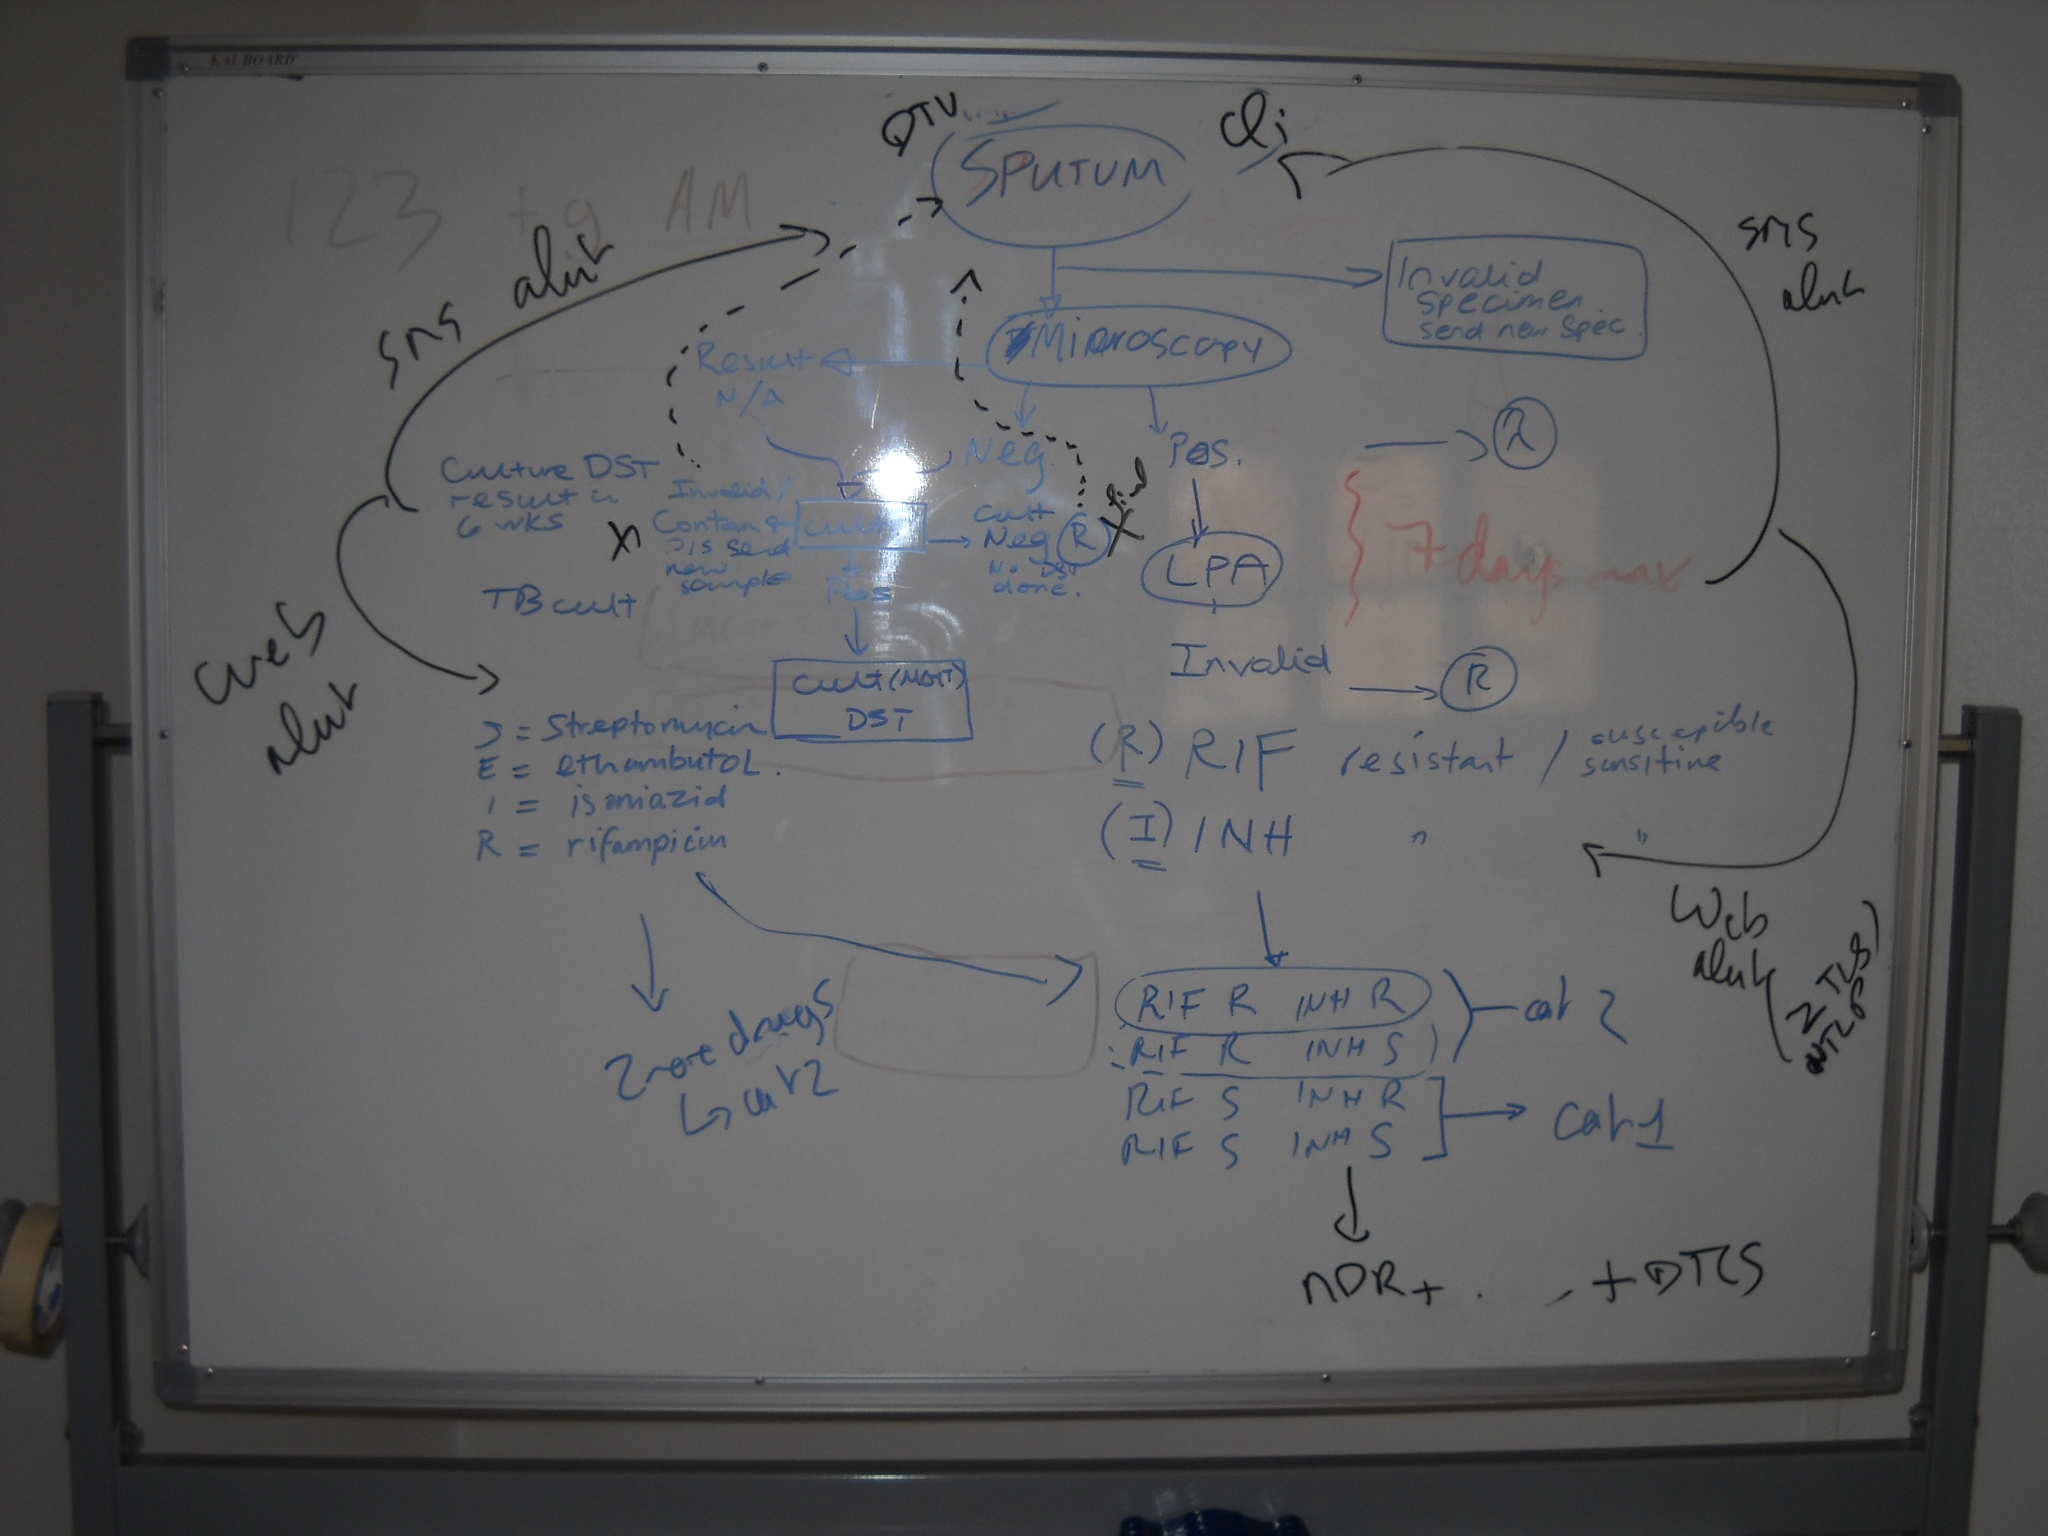 KALBOARD
DTU
Cli
SPUTUM
123 tg AM
sms alert
sms
alert
Invalid
specimen
send new spec.
Microscopy
Result
N/A
Neg.
Pos.
R
Culture DST
result in
6 wks
Invalid/
Contam
pls send
new
sample
Cult
Cult
Neg
R
final
No DST
done.
Pos
LPA
7 days max
TB cult
Web
alert
Invalid
R
Cult (MGIT)
DST
S = Streptomycin
E = ethambutol.
I = isoniazid
R = rifampicin
(R) RIF resistant / susceptible
sensitive
(I) INH " "
Web
alert
2 more drugs
↳ cat 2
RIF R INH R
RIF R INH S
cat 2
RIF S INH R
RIF S INH S
cat 1
+ DTLS